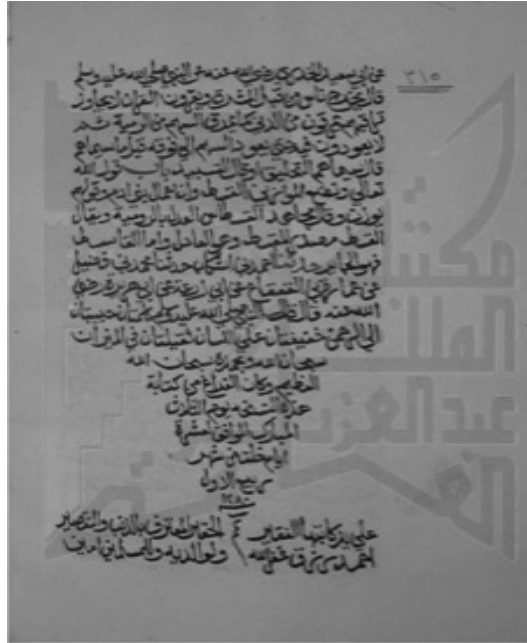 ٣١٥
عن ابي سعيد الخدري رضي الله عنه عن النبي صلى الله عليه وسلم
قال يخرج ناس من قبل المشرق ويقرؤن القرآن لا يجاوز
تراقيهم يمرقون من الدين كما يمرق السهم من الرمية ثم
لا يعودون فيه حتى يعود السهم الى فوقه قيل ما سيماهم
قال سيماهم التحليق او قال التسبيد باب قول الله
تعالى ونضع الموازين القسط وان اعمال بني ادم وقولهم
يوزن وقال مجاهد القسطاس العدل بالرومية ويقال
القسط مصدر المقسط وهو العادل واما القاسط
فهو الجائر حدثنا احمد بن اشكاب حدثنا محمد بن فضيل
عن عمارة بن القعقاع عن ابي زرعة عن ابي هريرة رضي
الله عنه قال قال النبي صلى الله عليه وسلم كلمتان حبيبتان
الى الرحمن خفيفتان على اللسان ثقيلتان في الميزان
سبحان الله وبحمده سبحان الله
العظيم وكان الفراغ من كتابة
هذه النسخه يوم الثلاث
المبارك الموافق لعشرة
ايام خلت من شهر
ربيع الاول
١٢٨٠
على يد كاتبها الفقير الحقير المعترف بالذنب والتقصير
غفر الله ولوالديه والمسلمين امين